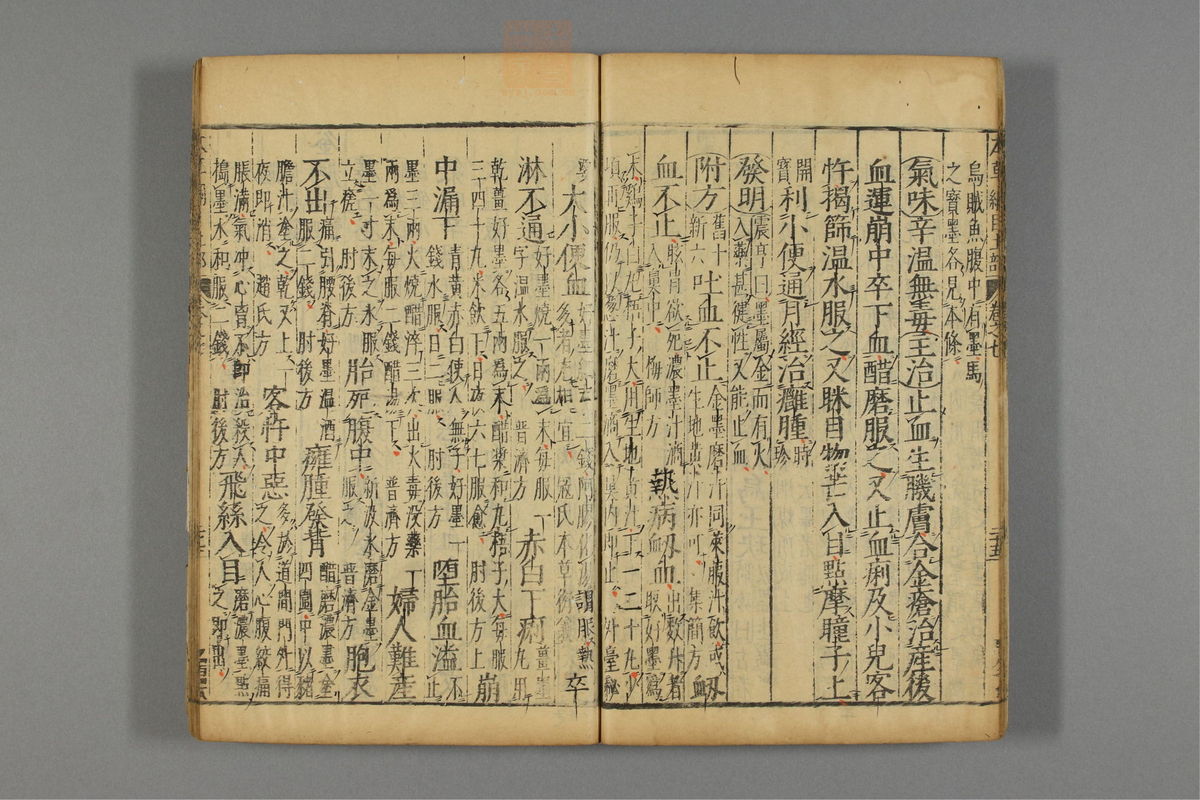 烏賊魚腹中有墨馬
之寶墨各見本條
氣味辛温無毒主治止血生饑膚合金瘡治産後
血運崩中卒下血醋磨服之又止血痢及小兒客
忤搗篩温水服之又眯目物芒入目點摩瞳子上
開
寶
利小便通月經治癰腫時
珍
發明震亨曰墨屬金而有火
入藥甚健性又能止血
附方舊十
新六
吐血不止金墨磨汁同萊服汁飲或
生地黄汁亦可 集簡方
衂
血不止眩冒欲死濃墨汁滴
入鼻中 梅師方
熱病衂血出數升者
取好墨爲
末鷄子白丸梧子大用生地黄汁下一二十丸少
頃再服仍以葱汁磨墨滴入鼻内即止 外臺秘
大小便血好墨細末二錢阿膠化湯調服熱
多者尤相宜 寇氏本草衍義
卒
淋不通好墨燒一兩爲末每服一
字温水服之 普濟方
赤白下痢薑墨丸用
乾薑好墨各五兩爲末醋漿和丸梧子大每服
三四十丸米飲下日夜六七服愈 肘後方上
崩
中漏下青黄赤白使人無子好墨一
錢水服日二服 肘後方
堕胎血溢不止
墨三兩火燒醋淬三次出火毒没藥一
兩爲末每服二錢醋湯下 普濟方
婦人難産
墨一寸末之水服
立産 肘後方
胎死腹中新汲水磨金墨
服之 普濟方
胞衣
不出痛引腰脊好墨温酒
服二錢 肘後方
癰腫發背醋磨濃墨塗
四圍中以猪
膽汁塗之乾又上一
夜即消 趙氏方
客忤中惡多於道間門外得
之令人心腹絞痛
脹滿氣冲心胷不即治殺人
搗墨水和服二錢 肘後方
飛絲入目磨濃墨點
之即出